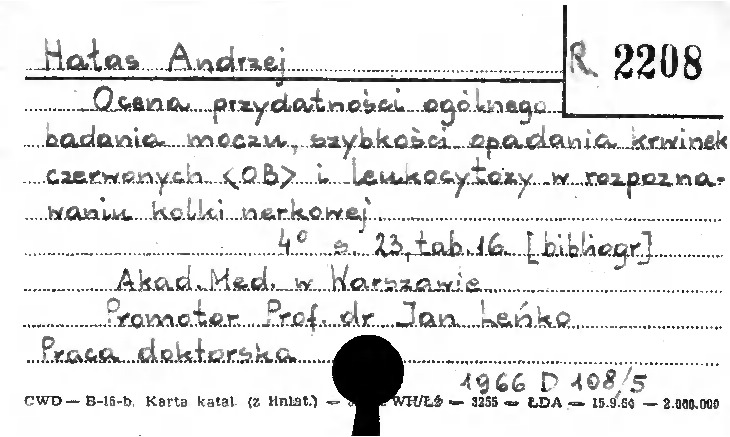 Hałas Andrzej
R 2208
Ocena przydatności ogólnego
badania moczu, szybkości opadania krwinek
czerwonych <OB> i leukocytozy w rozpozna-
waniu kolki nerkowej.
4° s. 23, tab. 16 [bibliogr]
Akad. Med. w Warszawie
Promotor Prof. dr Jan Leńko
Praca doktorska
1966 D 108/5
CWD — B-15-b. Karta katal. (z — WH/ŁŚ — 3255 — ŁDA — — 2.000.000